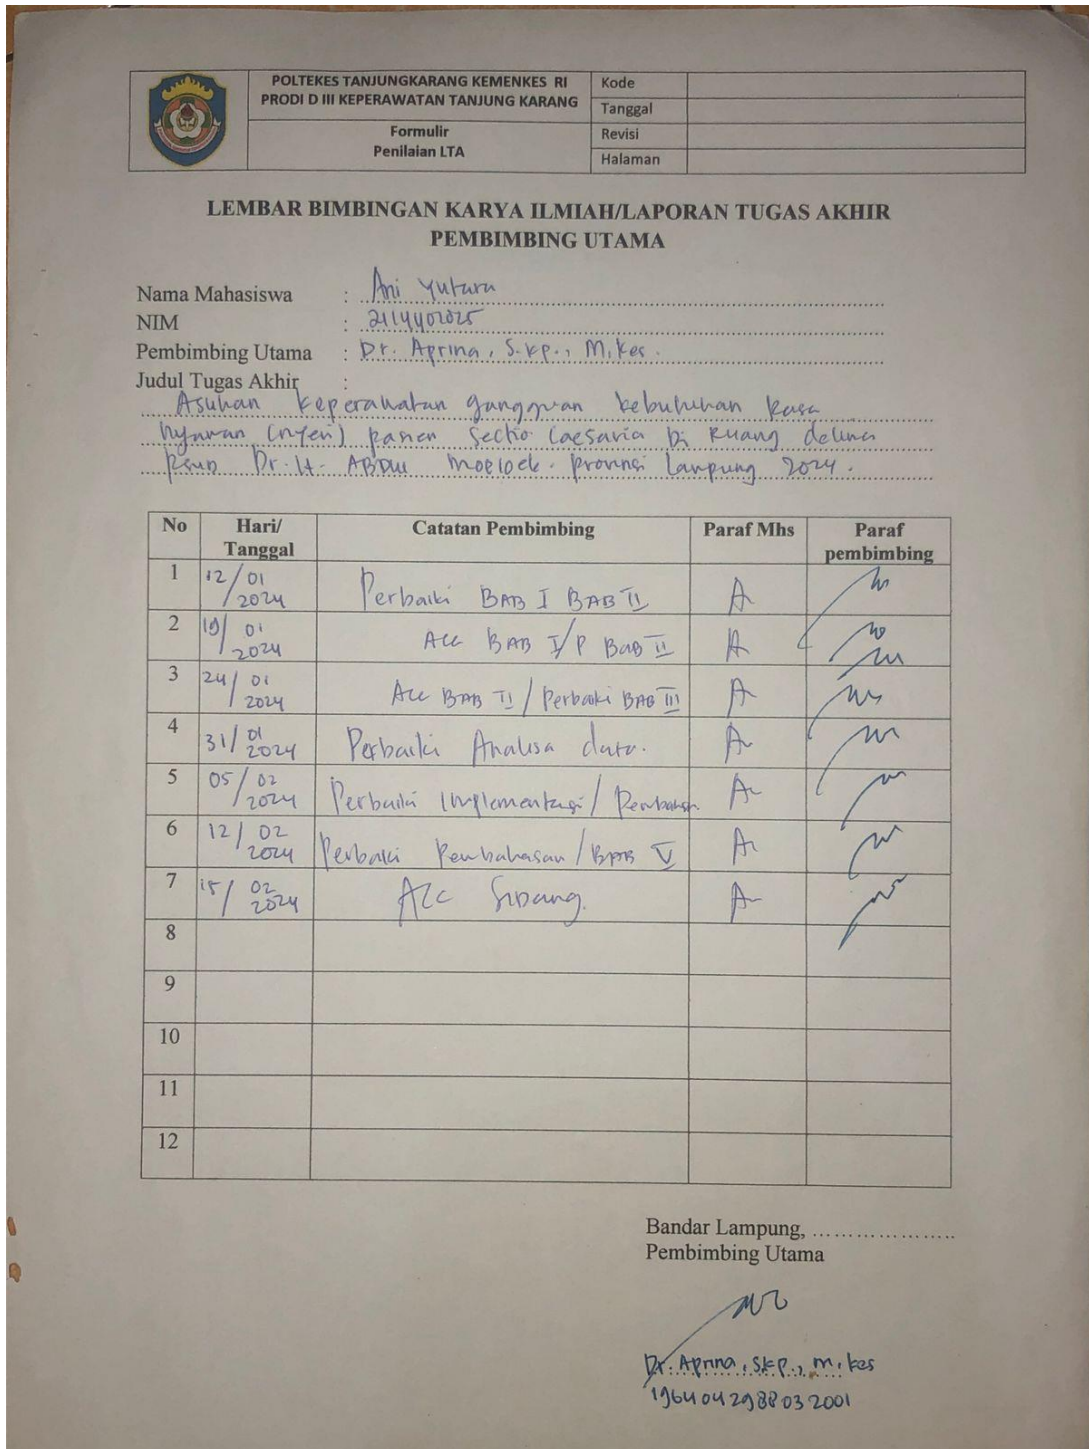 POLTEKES TANJUNGKARANG KEMENKES RI
PRODI D III KEPERAWATAN TANJUNG KARANG
Formulir
Penilaian LTA
Kode
Tanggal
Revisi
Halaman
LEMBAR BIMBINGAN KARYA ILMIAH/LAPORAN TUGAS AKHIR
PEMBIMBING UTAMA
Nama Mahasiswa : Ani Yutara
NIM : 2114402025
Pembimbing Utama : Dr. Aprina, S.kp., M.kes.
Judul Tugas Akhir :
Asuhan keperawatan gangguan kebutuhan Rasa
Nyaman (nyeri) pasien Sectio Caesaria Di Ruang delima
RSUD Dr. H. ABDUL Moeloek. provinsi Lampung 2024.
No Hari/ Tanggal Catatan Pembimbing Paraf Mhs Paraf pembimbing
1 12/01/2024 Perbaiki BAB I BAB II
2 19/01/2024 Acc BAB I/P BaB II
3 24/01/2024 Acc BAB II / Perbaiki BAB III
4 31/01/2024 Perbaiki Analisa data.
5 05/02/2024 Perbaiki Implementasi/
6 12/02/2024 Perbaiki Pembahasan / BAB V
7 02/2024 Acc Sidang.
8
9
10
11
12
Bandar Lampung, .....................
Pembimbing Utama
Dr. Aprina, Skp., m.kes
196404298803 2001